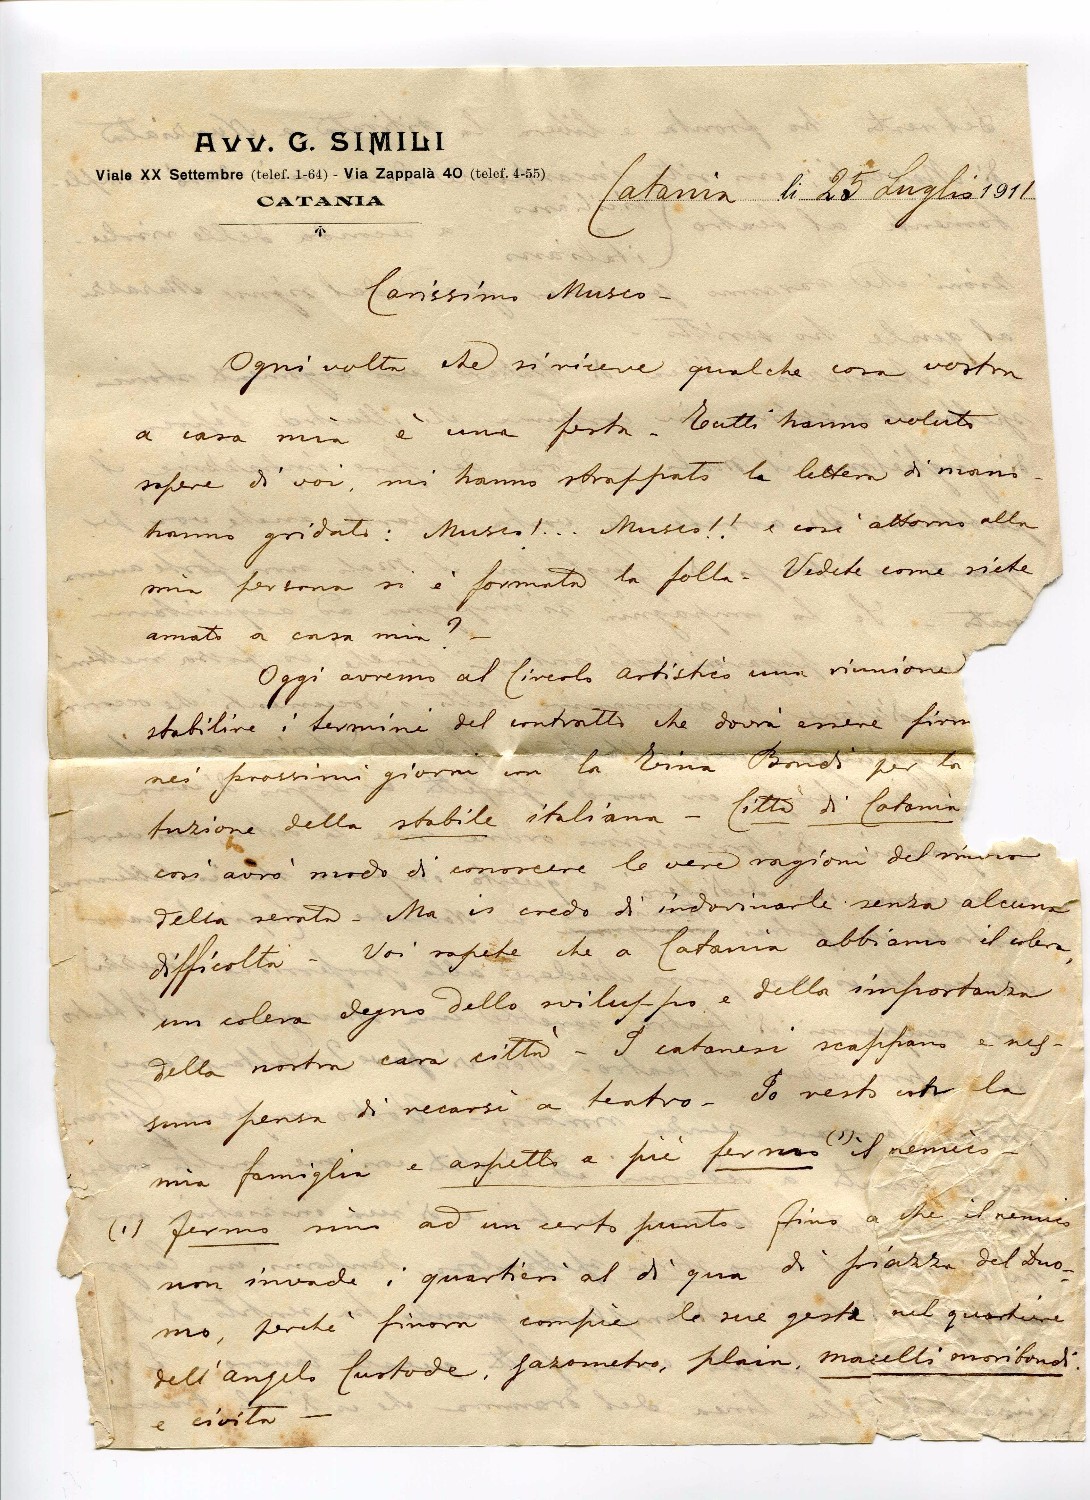 Avv. G. SIMILI
Viale XX Settembre (telef. 1-64) - Via Zappalà 40 (telef. 4-55)
CATANIA
Catania li 25 Luglio 1911
Carissimo Musco -
Ogni volta che si riceve qualche cosa vostra
a casa mia è una festa - Tutti hanno voluto
sapere di voi, mi hanno strappato la lettera di mano -
hanno gridato: Musco!... Musco!! e così attorno alla
mia persona si è formata la folla - Vedete come siete
amato a casa mia? -
Oggi avremo al Circolo artistico una riunione
stabilire i termini del contratto che dovrà essere firm
nei prossimi giorni con la Tina Bondi per la
tuzione della stabile italiana - Città di Catania
così avrò modo di conoscere le vere ragioni del rinvio
della serata - Ma io credo di indovinarle senza alcuna
difficoltà - Voi sapete che a Catania abbiamo il colera,
un colera degno dello sviluppo e della importanza
della nostra cara città - I catanesi scappano e nes-
suno pensa di recarsi a teatro - Io resto con la
mia famiglia e aspetto a piè fermo (1) il nemico -
(1) fermo sino ad un certo punto - fino a che il nemico
non invade i quartieri al di qua di piazza del Duo-
mo, perchè finora compie le sue gesta nel quartiere
dell'angelo Custode, gazometro, plaia, macelli moribondi
e civita -